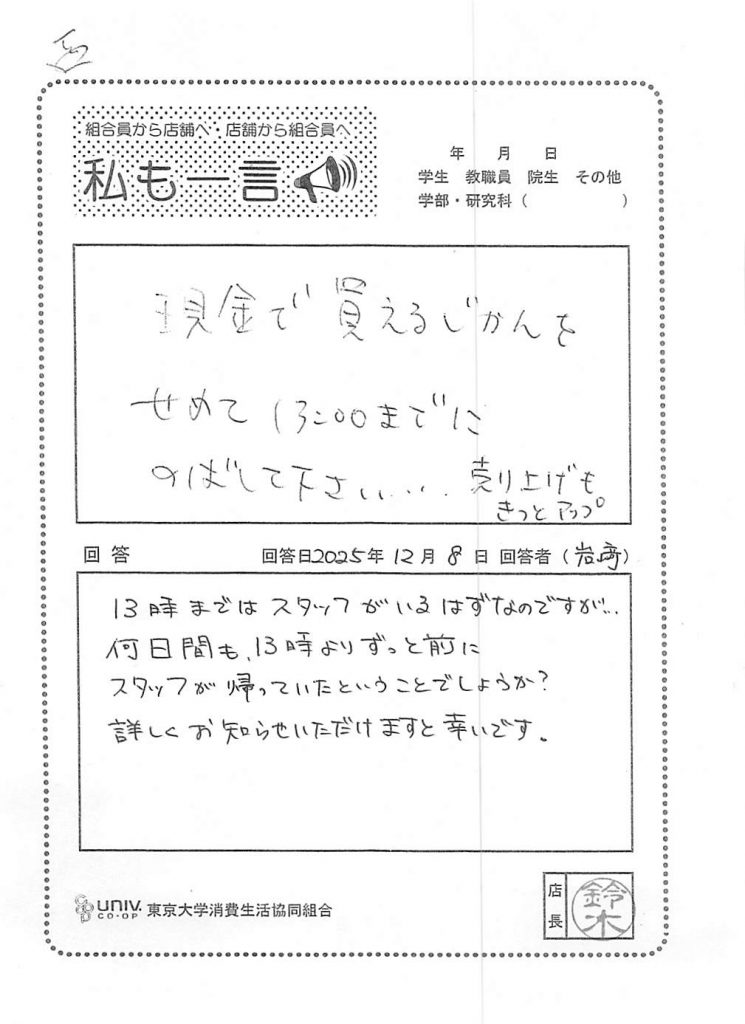 組合員から店舗へ・店舗から組合員へ
私も一言
年 月 日
学生 教職員 院生 その他
学部・研究科（ ）
現金で買えるじかんを
せめて13:00までに
のばして下さい.... 売り上げも
きっとアップ
回答 回答日2025年12月8日 回答者（岩崎）
13時まではスタッフがいるはずなのですが...
何日間も、13時よりずっと前に
スタッフが帰っていたということでしょうか?
詳しくお知らせいただけますと幸いです。
UNIV.
CO-OP
東京大学消費生活協同組合
店長
鈴木